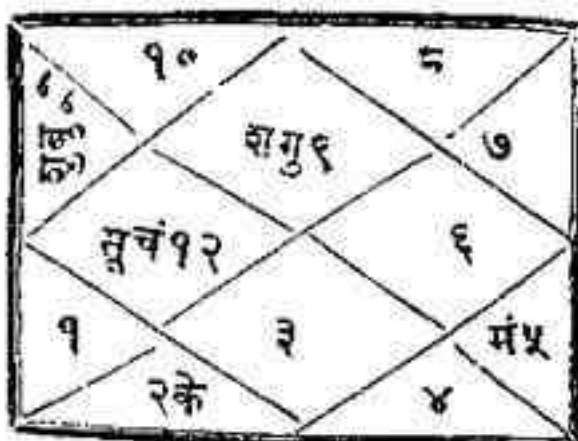 १० ८
११
शगु९ ७
सूचं१२ ६
१ ३ मं५
२के ४